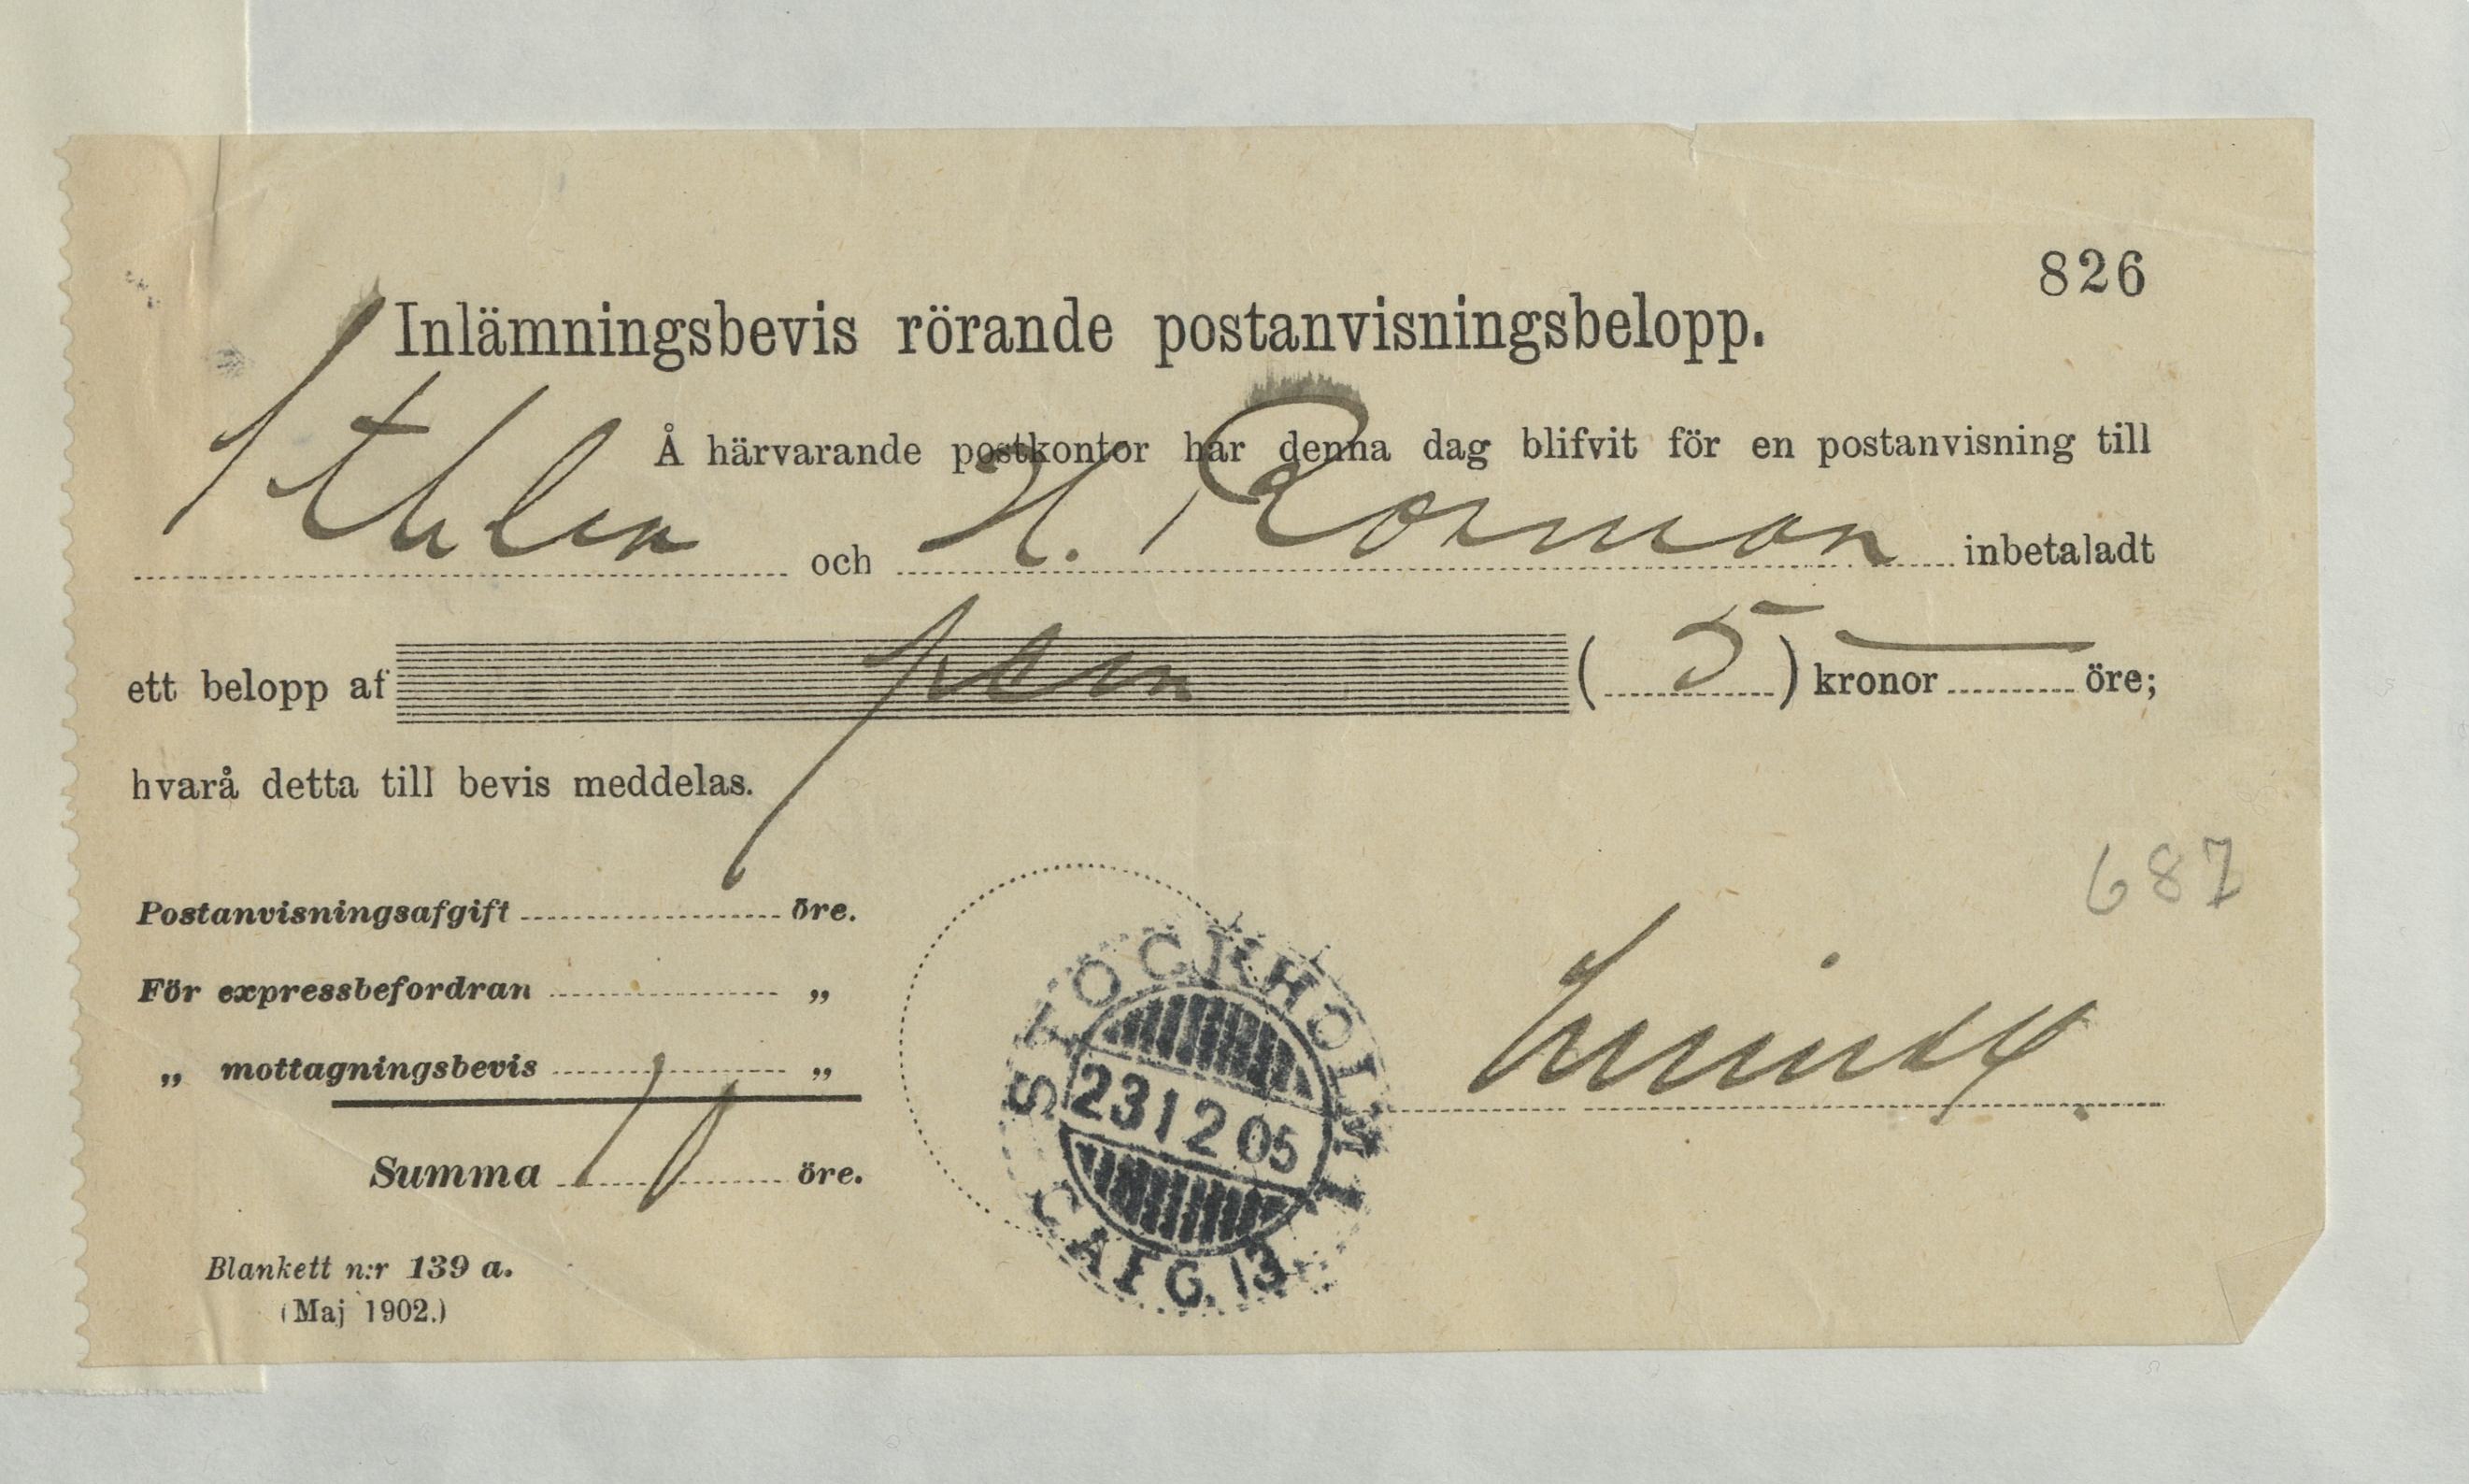 826
Inlämningsbevis rörande postanvisningsbelopp.
Å härvarande postkontor har denna dag blifvit för en postanvisning till
Sthlm och H. Rosman inbetaladt
ett belopp af fem (5) kronor — öre;
hvarå detta till bevis meddelas.
687
Postanvisningsafgift öre.
För expressbefordran „
„ mottagningsbevis „
Summa 10 öre.
STOCKHOLM 1
23 12 05
C AFG. 13
Blankett n:r 139 a.
(Maj 1902.)